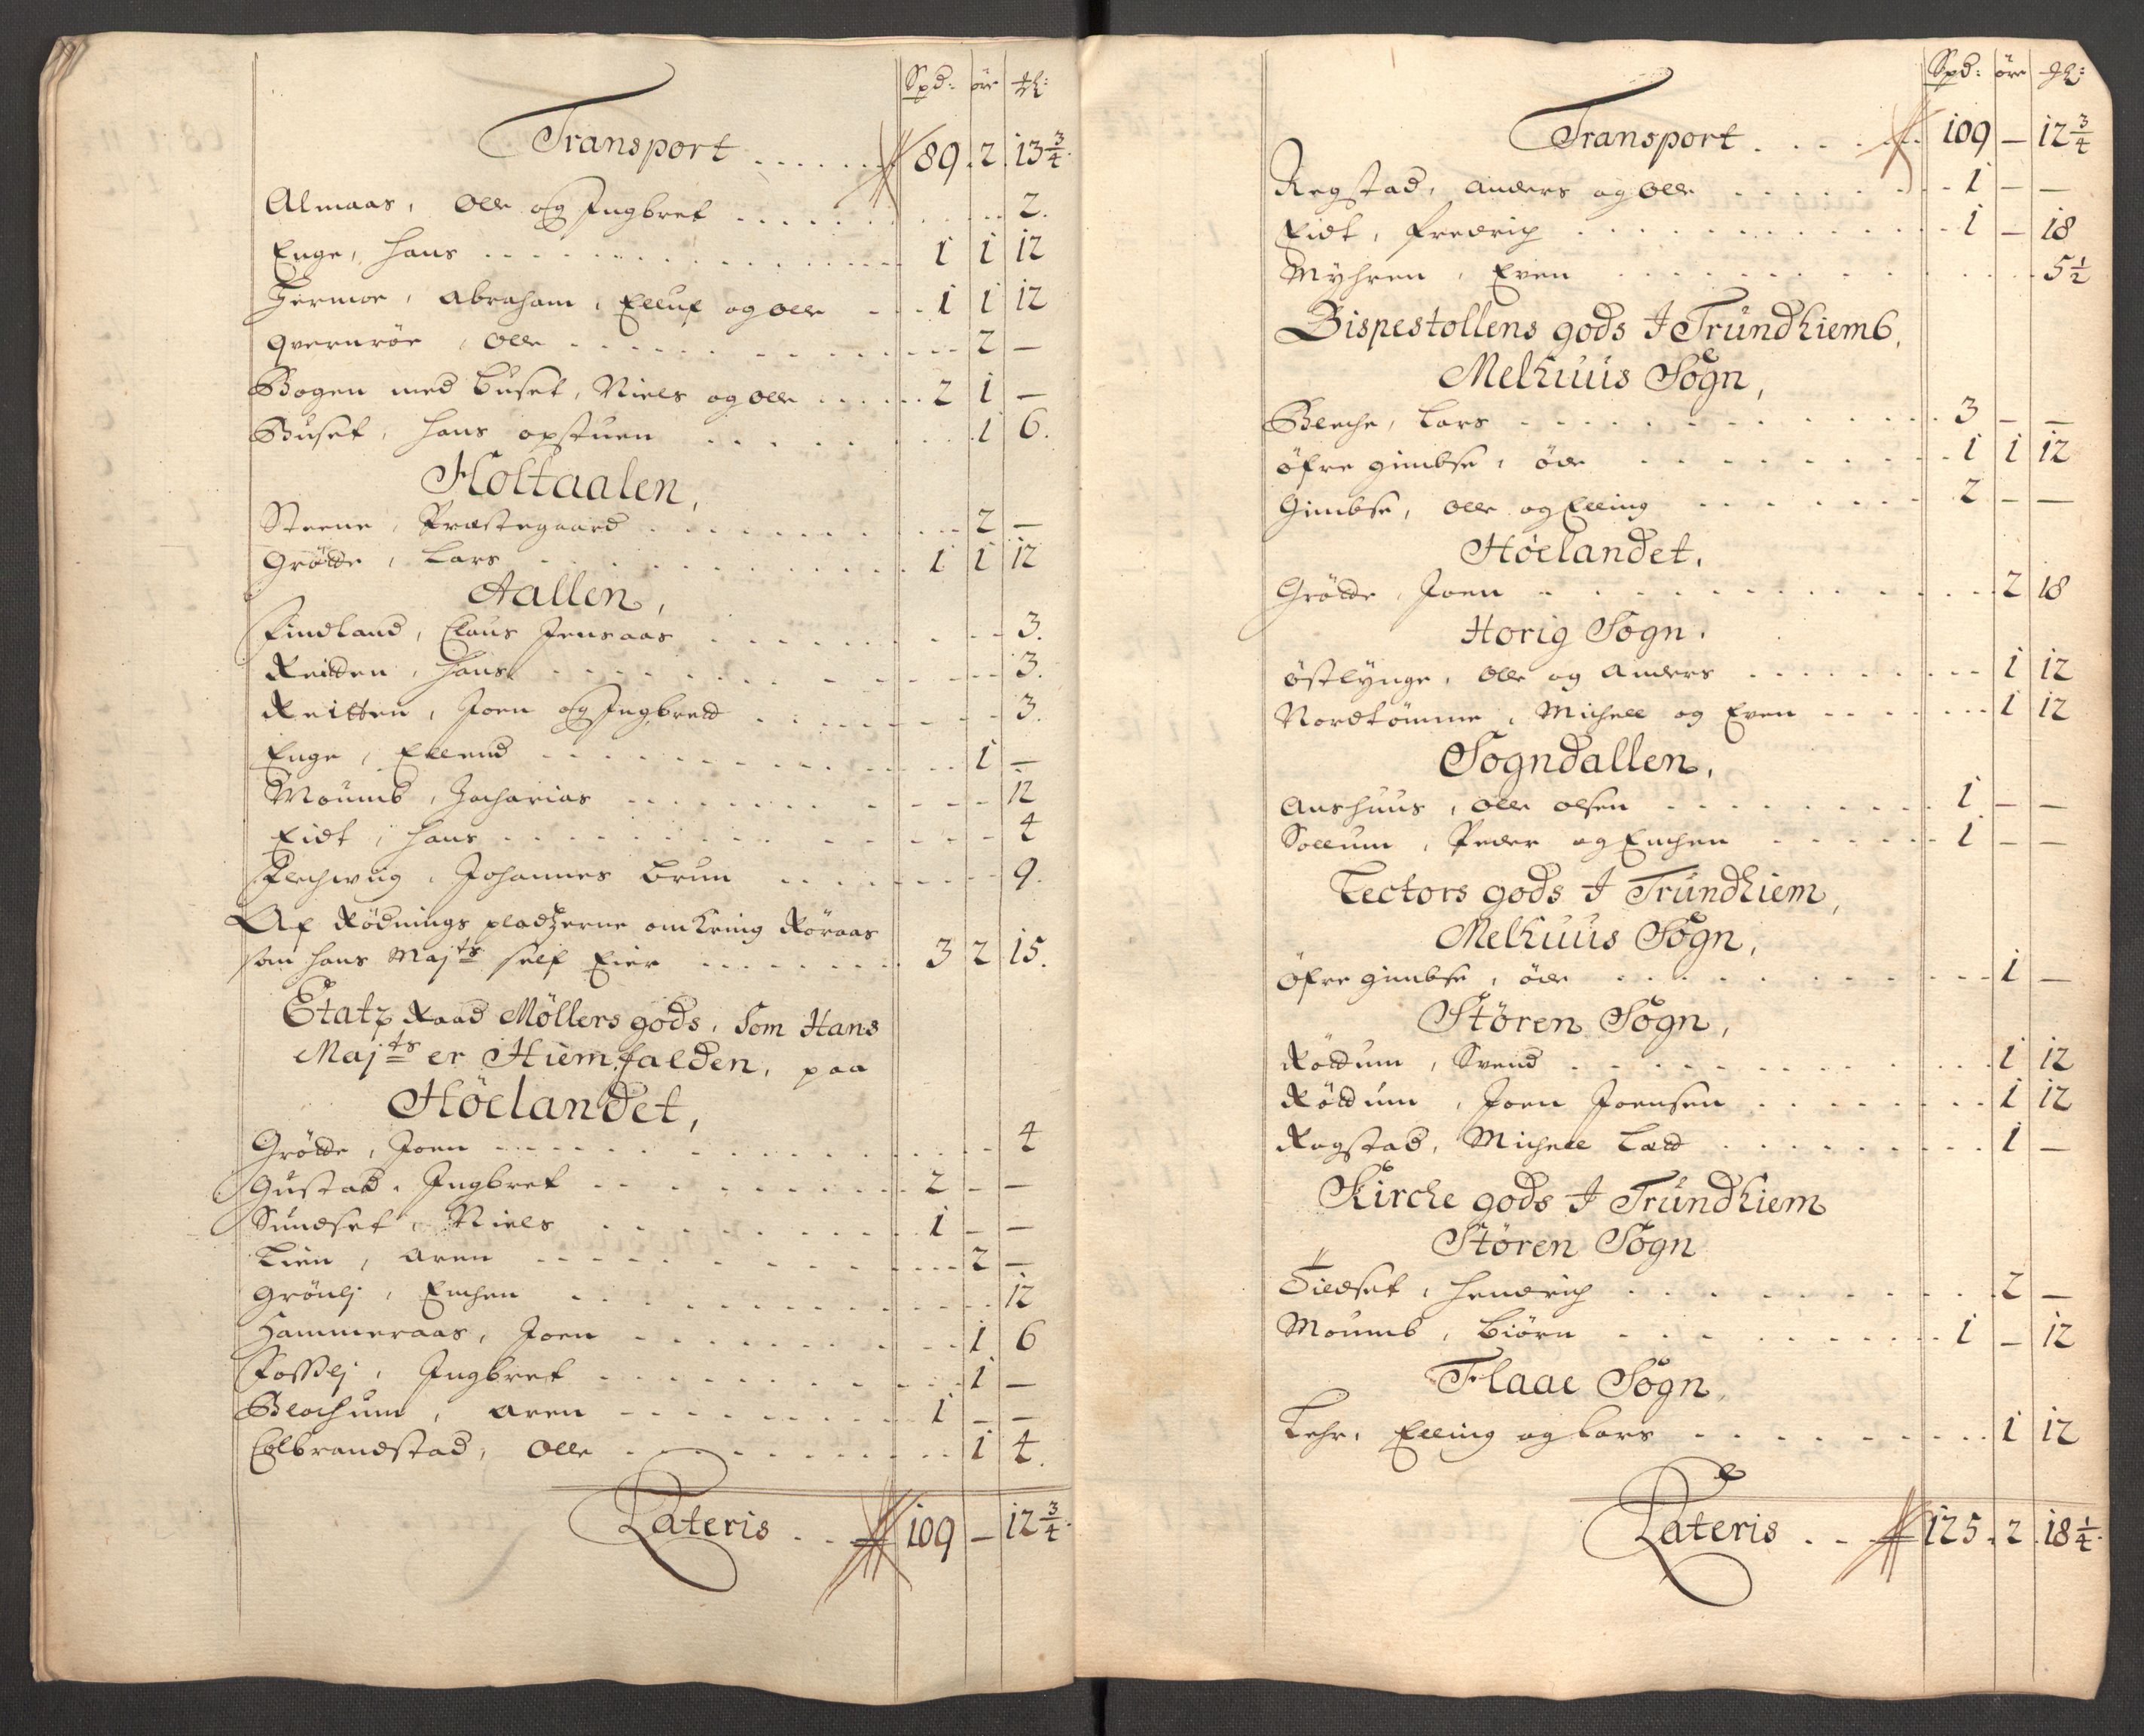 Spd: öre
Transport 89. 2. 13 3/4.
Almaas, Olle og Ingbret 2.
Enge, Hans 1 1 12
Hermoe, Abraham, Elluf og Olle 1 1 12
Qvernröe, Olle 2 —
Bogen med Buset, Niels og Olle 2 1 —
Buset, Hans opstuen 1 6.
Holtaalen,
Steene, Præstegaard 2 —
Grötte, Lars 1 1 12
Aallen,
Findland, Claus Jensaas 3.
Reitten, Hans 3.
Reitten, Joen og Ingbret 3.
Enge, Ellend 1 —
Moumb, Zacharias 12
Eidt, Hans 4
Johannes Brun 9.
Af Rödnings pladzerne omkring Röraas
som hans Majts self Eier 3 2 15.
Etatz Raad Möllers gods, Som Hans
Majts er Hiemfalden, paa
Höelandet,
Grötte, Joen 4
Gustad, Ingbret 2 — —
Sundset, Niels 1 — —
Lien, Aren 2 —
Grönlj, Enchen 12
Hammeraas, Joen 1 6
Fosslj, Ingbret 1 —
Blochum, Aren 1 — —
Colbrandstad, Olle 1 4.
Lateris 109 — 12 3/4.
Spd: öre
Transport 109 — 12 3/4
Regstad, Anders og Olle 1 — —
Eidt, Fredrich 1 — 18
Myhren, Even 5 1/2
Bispestollens gods I Trundhiemb,
Melhuus Sogn,
Bleche, Lars 3 — —
öfre Gimbse, öde 1 1 12
Gimbse, Olle og Elling 2 — —
Höelandet,
Grötte, Joen 2 18
Horig Sogn,
östlynge, Olle og Anders 1 12
Nordtömme, Michell og Even 1 12
Sogndallen,
Aushuus, Olle Olsen 1 — —
Sollum, Peder og Enchen 1 — —
Lectors gods I Trundhiem,
Melhuus Sogn,
öfre Gimbse, öde 1 —
Stören Sogn,
Röttum, Svend 1 12
Röttum, Joen Joensen 1 12
Rogstad, Michell Læt 1 —
Kirche gods I Trundhiem
Stören Sogn
Tildset, Hendrich 2 —
Moumb, Biörn 1 — 12
Flaae Sogn,
Lehr, Elling og Lars 1 12
Lateris 125. 2. 18 1/4.